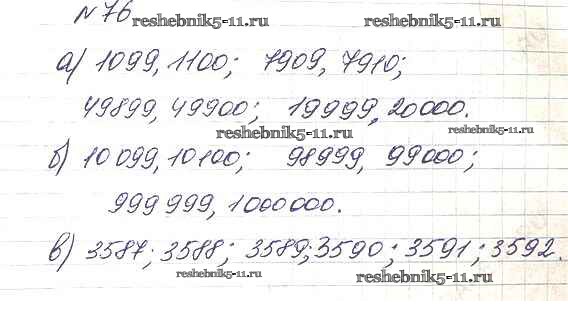 №76
reshebnik5-11.ru
reshebnik5-11.ru
а) 1099, 1100; 7909, 7910;
49899, 49900; 19999, 20000.
reshebnik5-11.ru
б) 10 099, 10 100; 98999, 99000;
999 999, 1000000.
в) 3587; 3588; 3589; 3590; 3591; 3592.
reshebnik5-11.ru
reshebnik5-11.ru